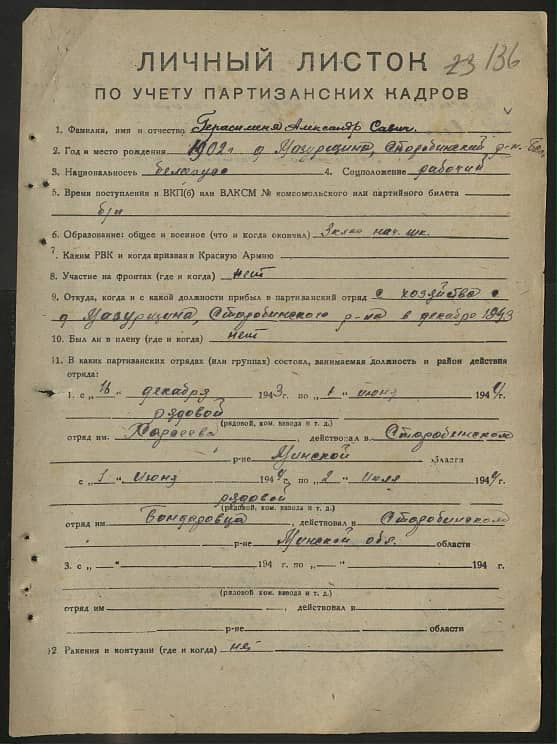 23 136
ЛИЧНЫЙ ЛИСТОК
ПО УЧЕТУ ПАРТИЗАНСКИХ КАДРОВ
1. Фамилия, имя и отчество Герасименя Александр Савич.
2. Год и место рождения 1902г. д Мазурщина, Старобинский р-н.
3. Национальность белорус 4. Соцположение рабочий
5. Время поступления в ВКП(б) или ВЛКСМ № комсомольского или партийного билета
б/п
6. Образование: общее и военное (что и когда окончил) 3 клас нач. шк.
7. Каким РВК и когда призван в Красную Армию
8. Участие на фронтах (где и когда) нет
9. Откуда, когда и с какой должности прибыл в партизанский отряд с хозяйства с
д Мазурщина, Старобинского р-на в декабре 1943
10. Был ли в плену (где и когда) нет
11. В каких партизанских отрядах (или группах) состоял, занимаемая должность и район действия
отряда:
1. с „16 " декабря 1943 г. по „1 " июня 1944
рядовой
(рядовой, ком. взвода и т. д.)
отряд им. , действовал в Старобинском
р-не Минской
с „1 " июня 1944 г. по „2 " июля 1944
рядовой
(рядовой, ком. взвода и т. д.)
отряд им Бондаровца , действовал в Старобинском
" р-не Минской обл. области
3. с „—" 194 г. по „—" 194 г.
(рядовой, ком. взвода и т. д.)
отряд им , действовал в
р-не области
12. Ранения и контузии (где и когда) нет